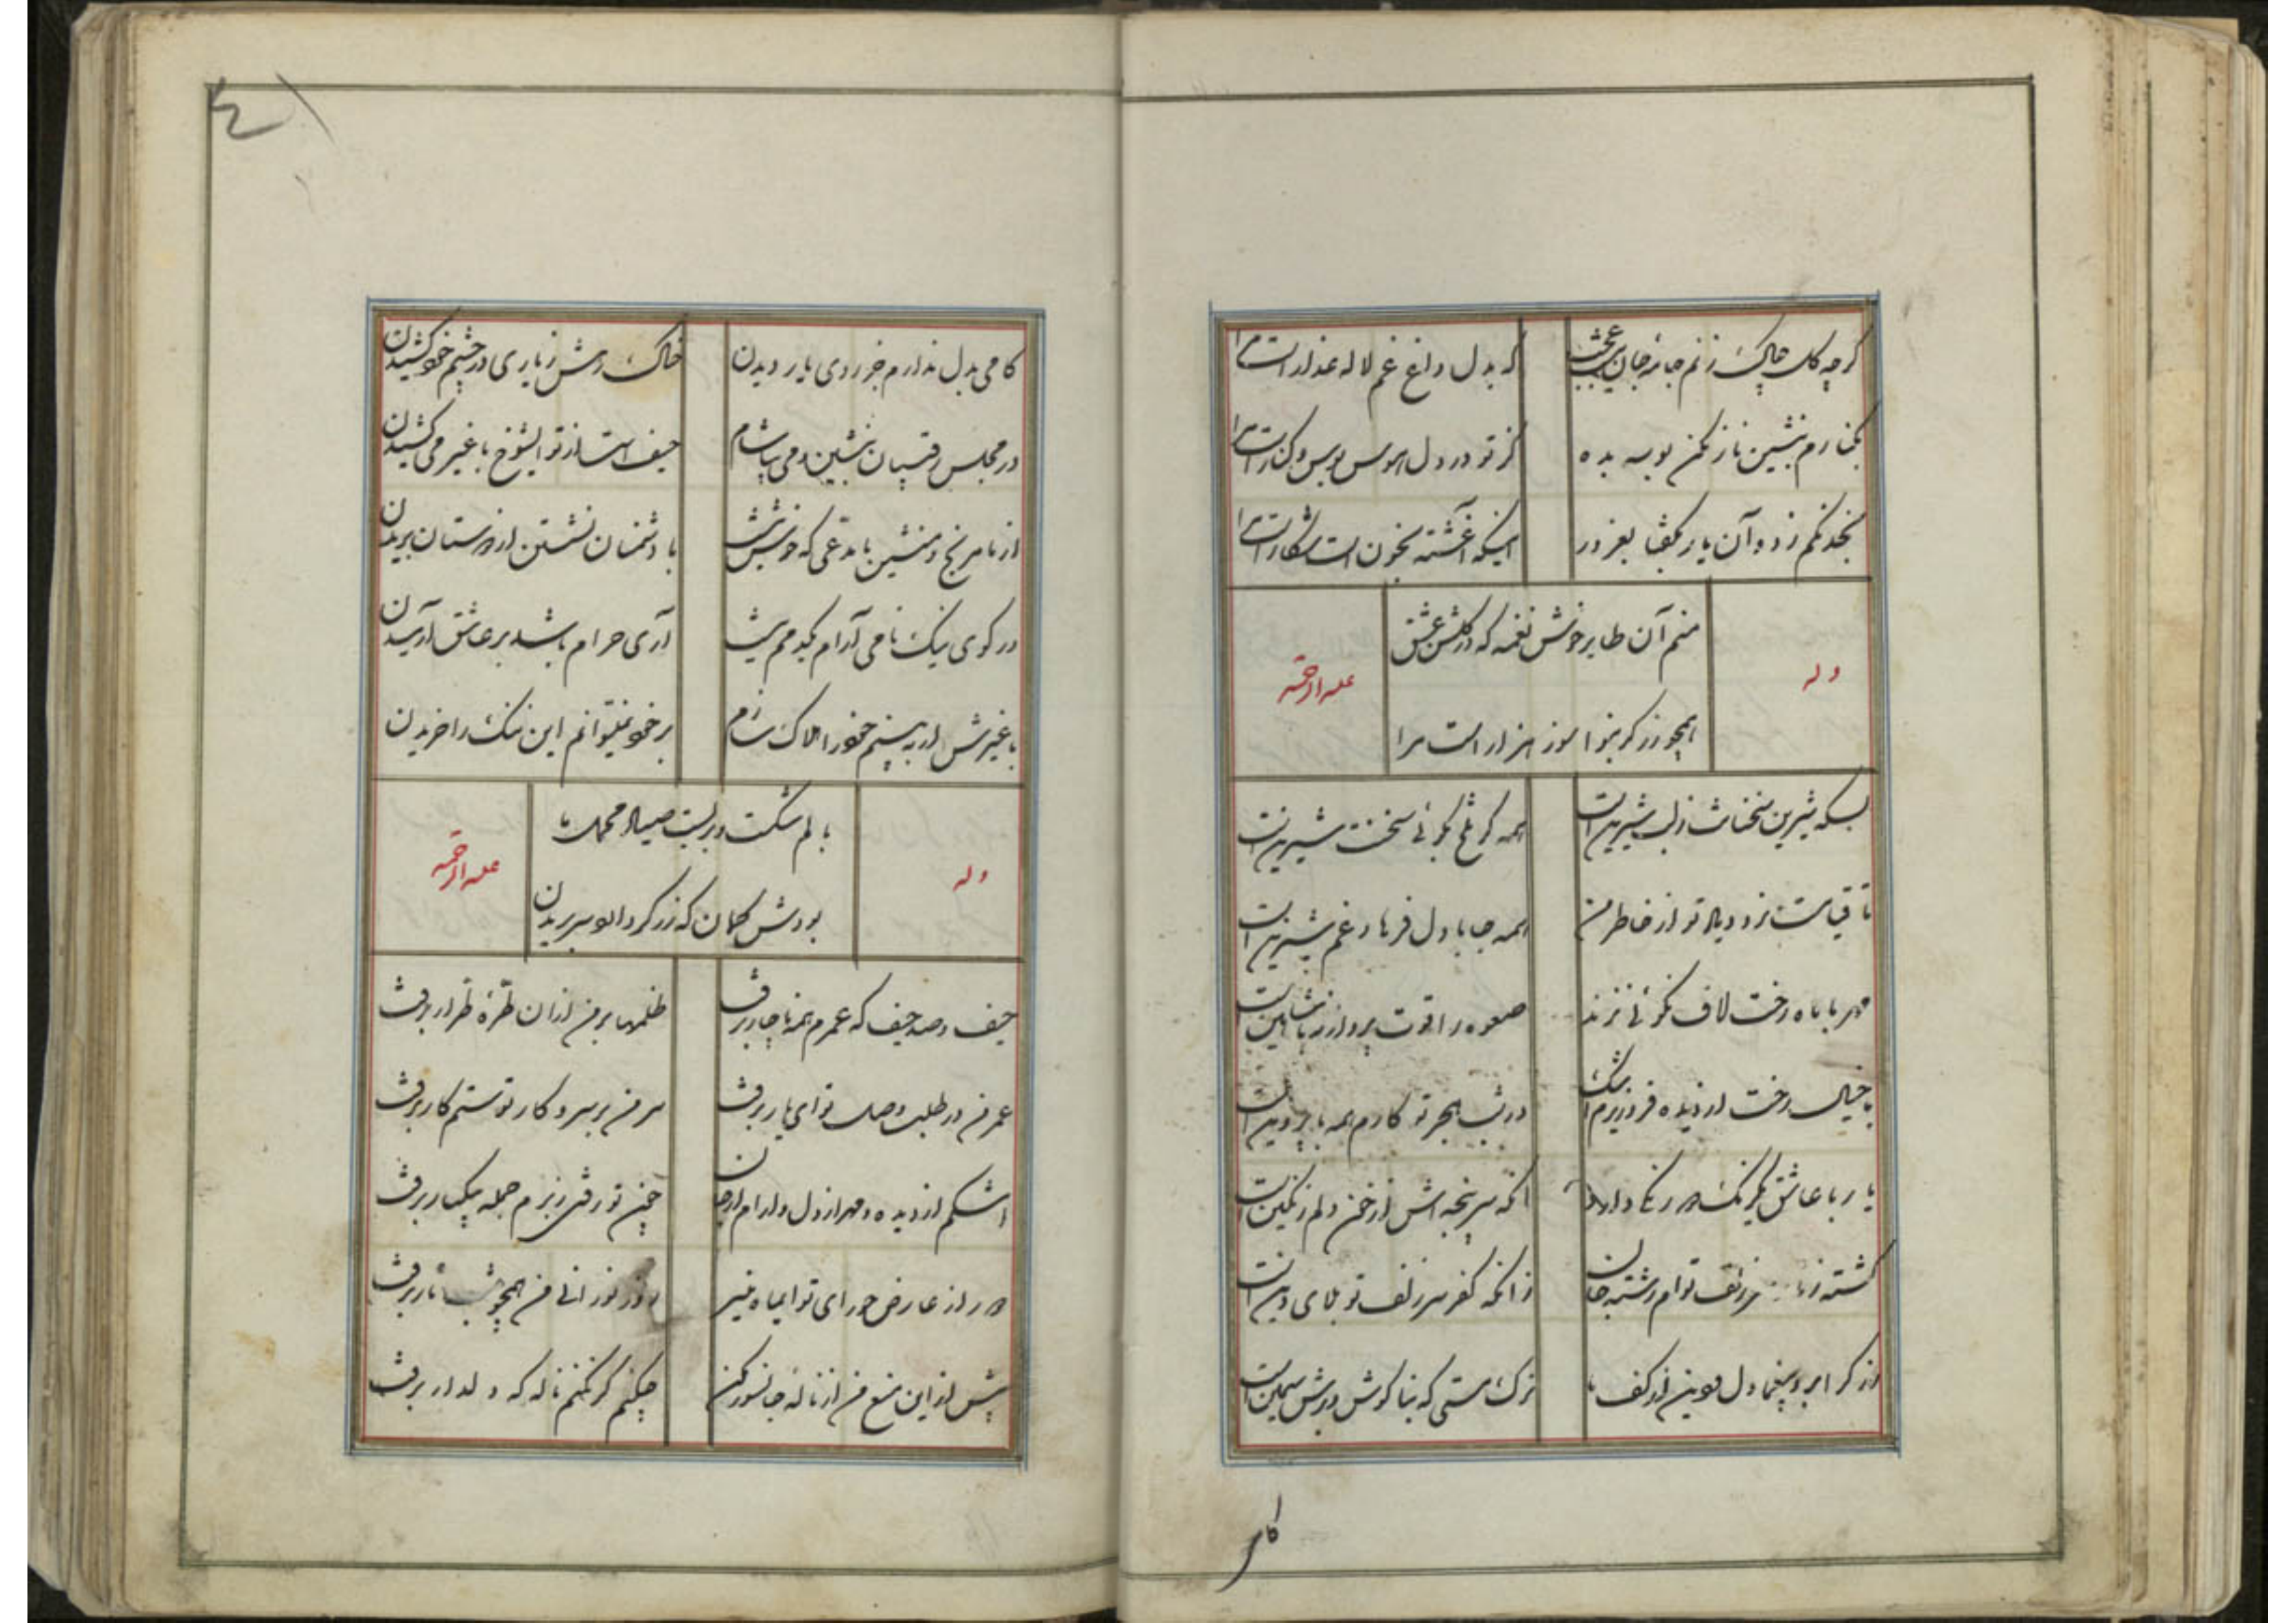 گرچه گل چاک زنم جامه جان عجب
که بدل داغ غم لاله عذاریست مرا
بکنارم بنشین ناز مکن بوسه بده
کز تو در دل هوس بوس و کناریست مرا
بخدنگم زد و آن یار بگفتا بغرور
اینکه آغشته بخون است شکاریست مرا
وله
منم آن طایر خوش نغمه که در گلشن عشق
همچو زرگر بنوا سوز هزار است مرا
علیه الرحمه
بسکه شیرین سخنانت ز لب شیرین است
همه گر تلخ بگوئی سخنت شیرین است
تا قیامت نرود یاد تو از خاطر من
همه جا با دل فرهاد غم شیرین است
مهر با ماه رخت لاف نکوئی نزند
صعوه را قوت پرواز نه با شاهین است
با خیال رخت از دیده فرو ریزم اشک
در شب هجر تو کارم همه با پروین است
یار با عاشق یکرنگ دو رنگی دارد
آنکه سرپنجه اش از خون دلم رنگین است
گشته زنار سر زلف توام رشته جان
زانکه کفر سر زلف تو بلای دین است
زرگر ابرد بیغما دل و دین از کف ما
ترک مستی که بناگوش و برش سیمین است
کامی
٤١
کامی بدل ندارم جز روی یار دیدن
خاک رهش ز یاری در چشم خود کشیدن
در مجلس رقیبان بنشین و می بیاشام
حیف است از تو ایشوخ با غیر می کشیدن
از ما مرنج و منشین با مدعی که خوش نیست
با دشمنان نشستن از دوستان بریدن
در کوی نیک نامی آرام یکدمم نیست
آری حرام باشد بر عاشق آرمیدن
با غیرش ار به بینم خود را هلاک سازم
بر خود نمیتوانم این ننگ را خریدن
وله
بالم شکست و بر بست صیاد محکمت پا
بودش گمان که زرگر داند و سر بریدن
علیه الرحمه
حیف و صد حیف که عمرم همه ناچار برفت
ظلمها بر من از ان طره طرار برفت
عمر من در طلب وصل تو ای یار برفت
سر من بر سر و کار تو ستم کار برفت
اشکم از دیده و مهر از دل و آرام از جان
چون تو رفتی ز برم جمله بیکبار برفت
دور از عارض حورای تو ایماه منیر
روز نورانی من همچو شب تار برفت
بیش از این منع من از ناله جانسوز مکن
چکنم گر نکنم ناله که دلدار برفت